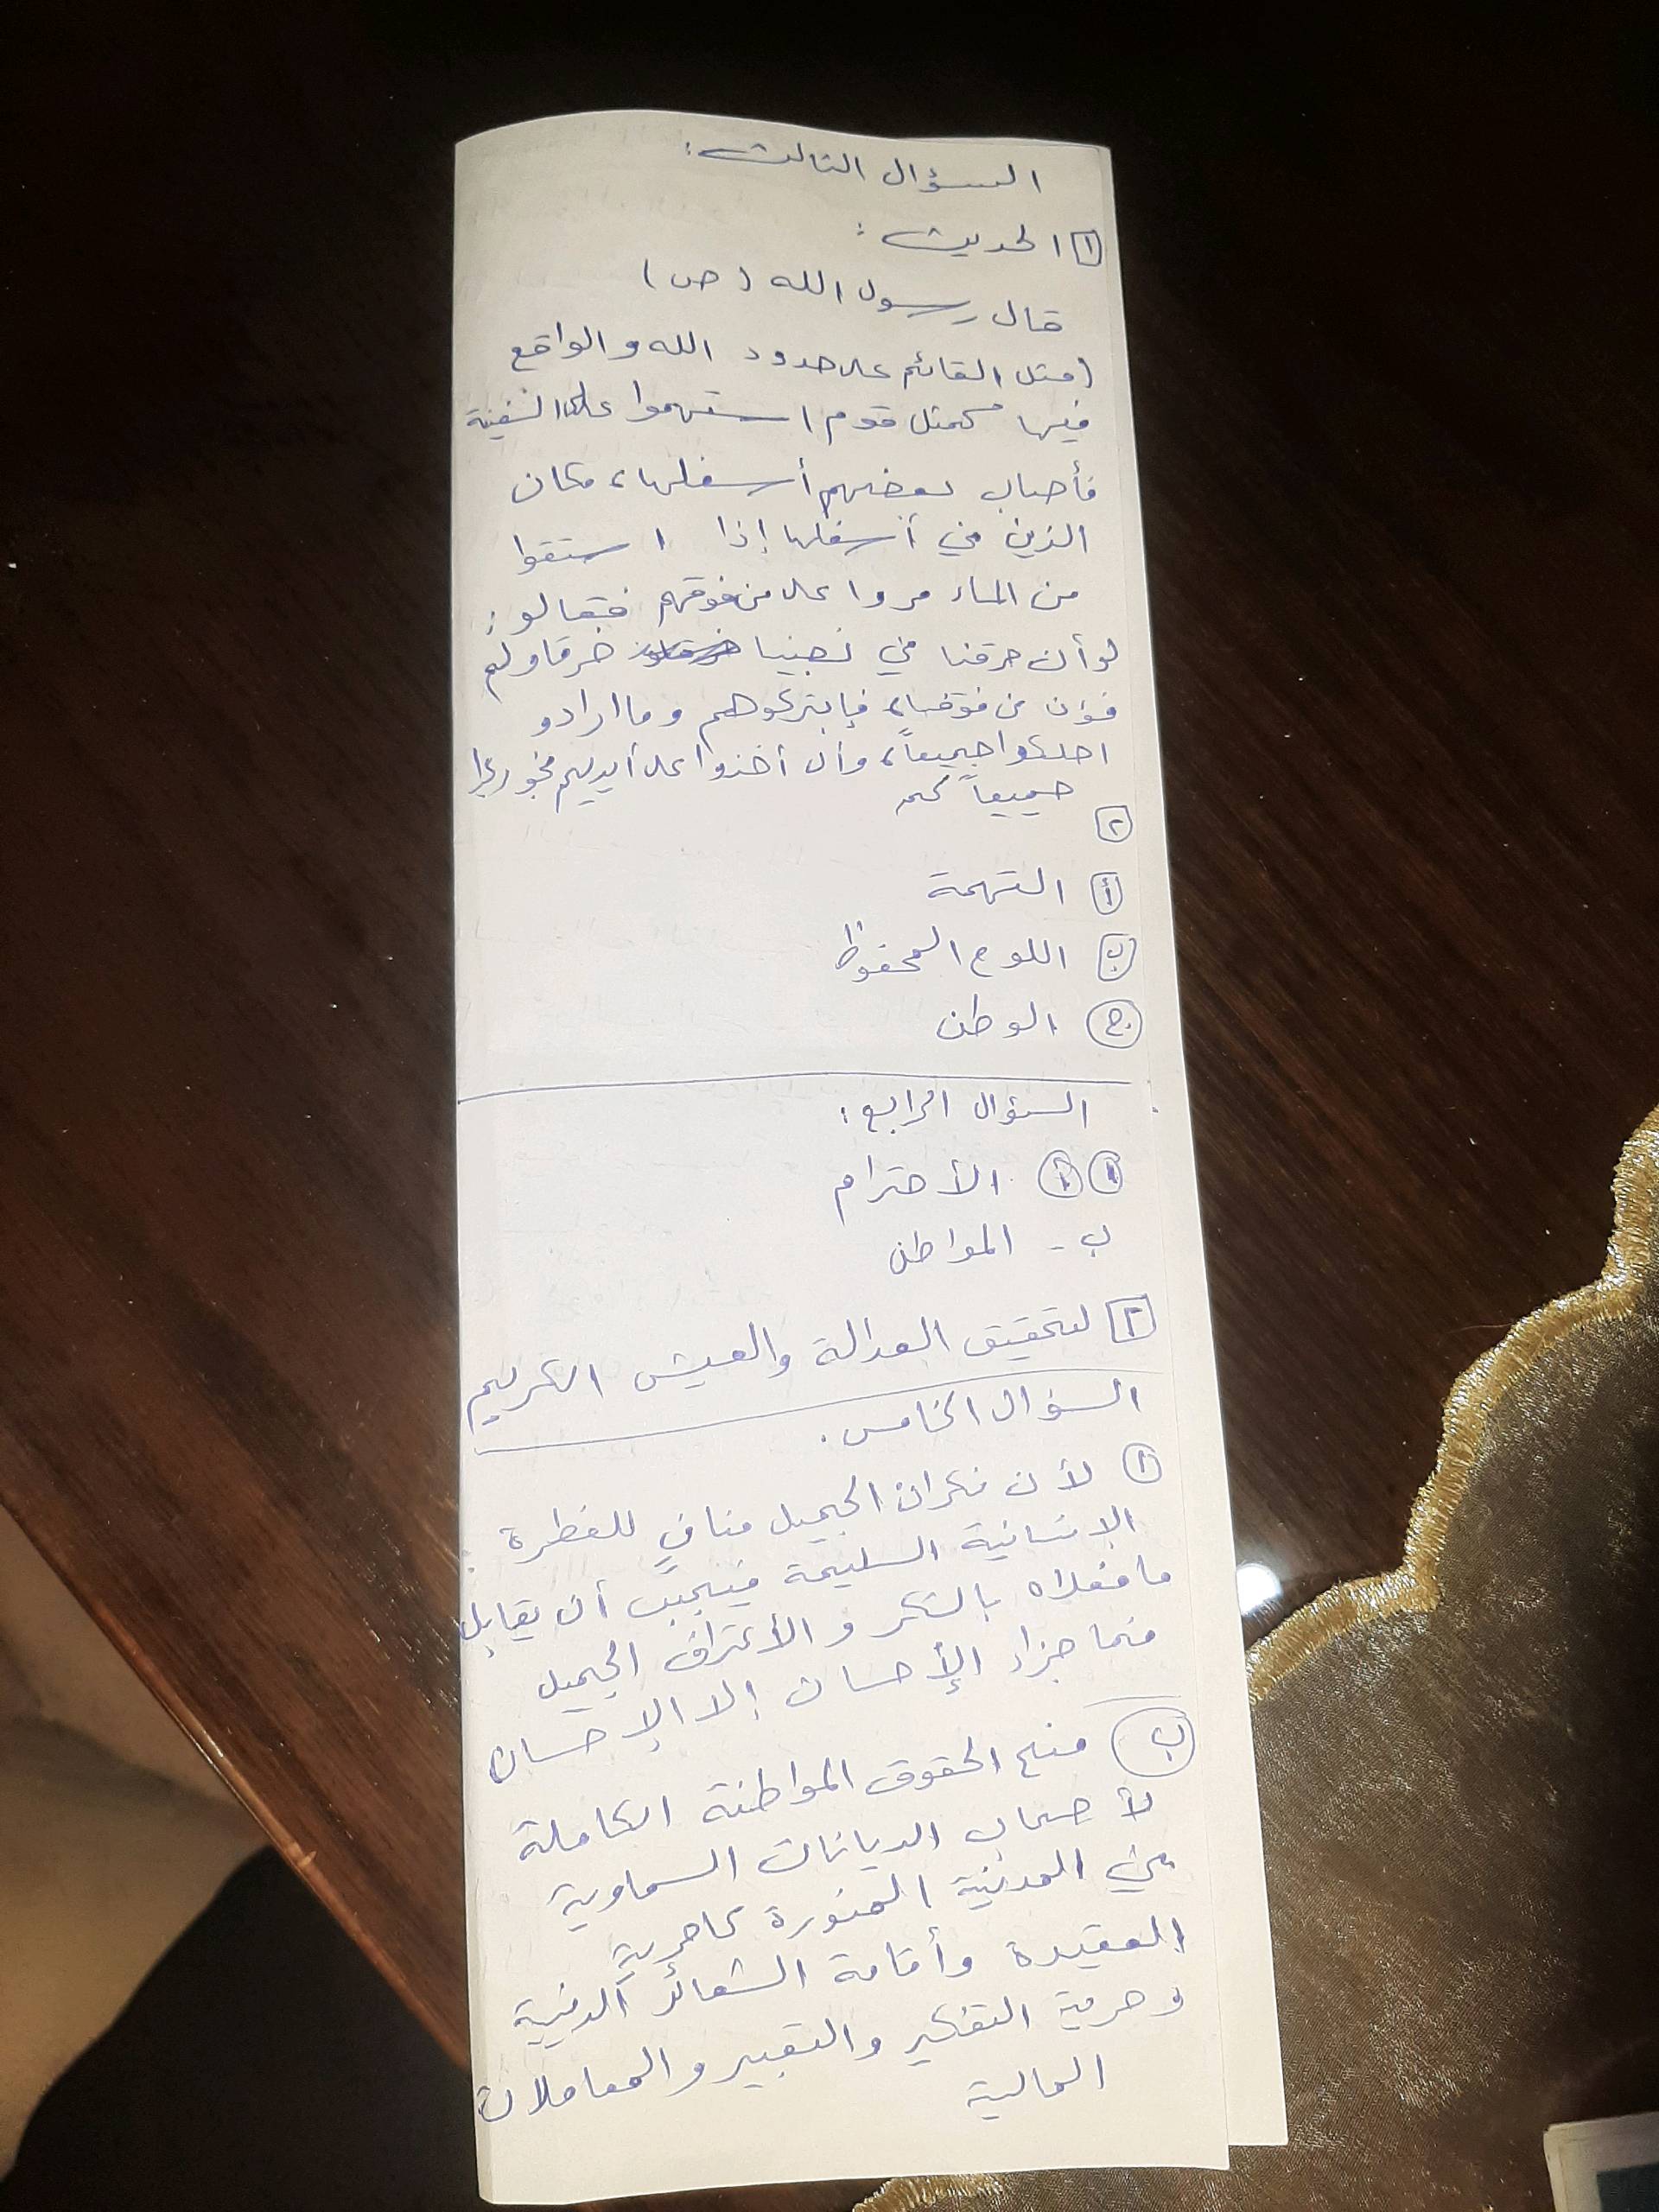 السؤال الثالث:
١ الحديث:
قال رسول الله (ص)
(مثل القائم على حدود الله والواقع
فيها كمثل قوم استهموا على السفينة
فأصاب بعضهم أسفلها، فكان
الذين في أسفلها إذا استقوا
من الماء مروا على من فوقهم فقالو:
لو أن خرقنا في نصيبنا خرقا ولم
نؤذ من فوقنا، فإن يتركوهم وما ارادو
اهلكوا جميعاً، وأن أخذوا على أيديهم نجو ونجوا
جميعاً
٢
أ التهمة
ب اللوح المحفوظ
ج الوطن
السؤال الرابع:
١ أ الأحترام
ب - المواطن
٢ لتحقيق العدالة والعيش الكريم
السؤال الخامس.
أ لأن نكران الجميل منافٍ للفطرة
الانسانية السليمة فيجب أن يقابل
ما فعلاه بالشكر والأعتراف الجميل
فما جزاء الإحسان إلا الإحسان
ب منح الحقوق المواطنة الكاملة
لأصحاب الديانات السماوية
في المدينة المنورة كاحرية
العقيدة وأقامة الشعائر الدينية
وحرية التفكير والتعبير والمعاملات
المالية